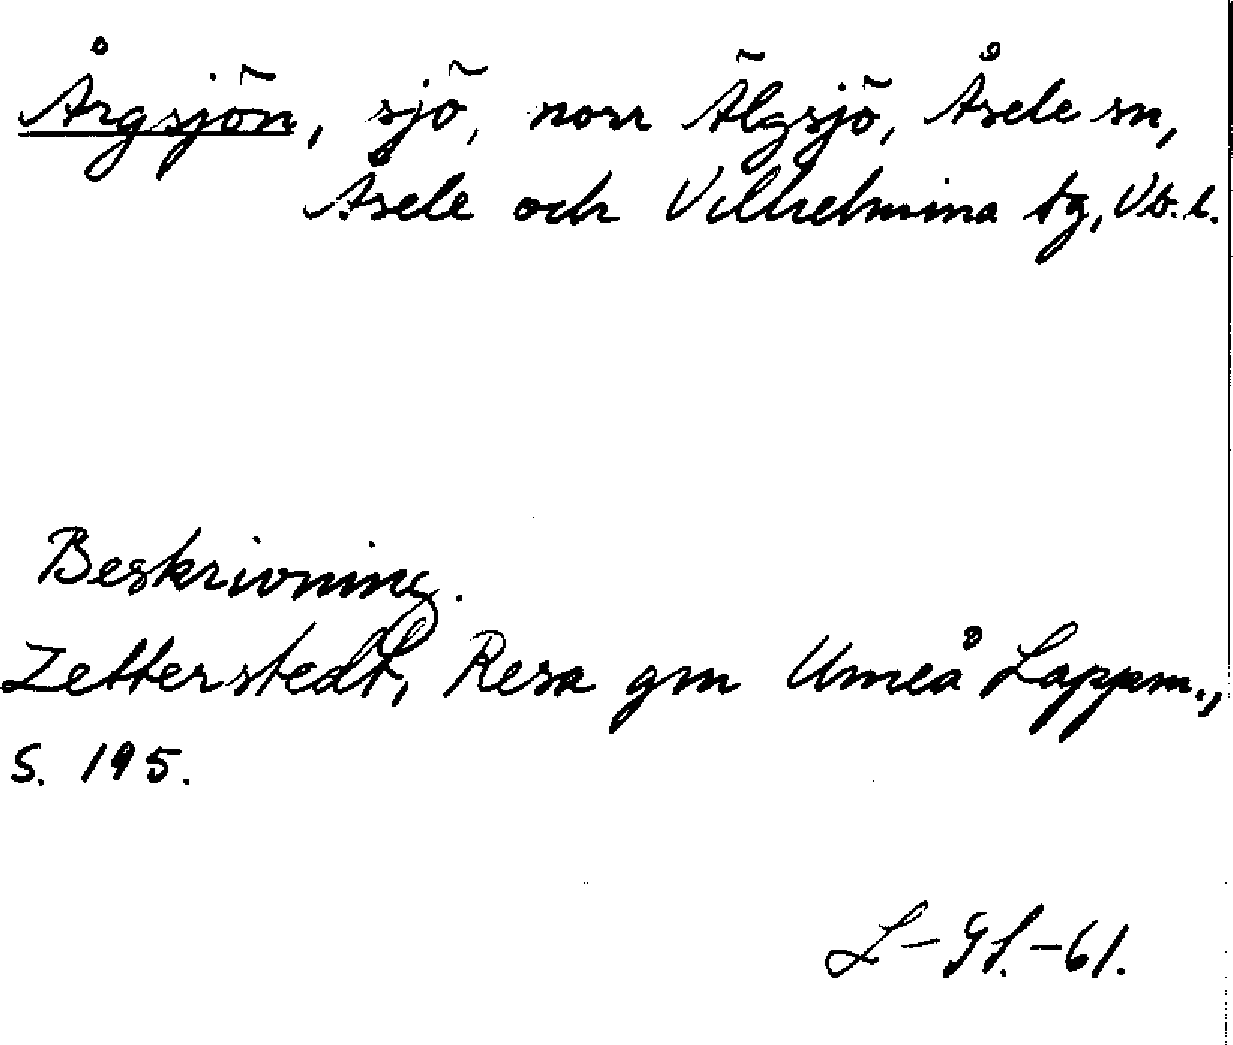 Årgsjön, sjö, norr Älgsjö, Åsele sn,
Åsele och Vilhelmina tg, Vb. l.
Beskrivning.
Zetterstedt, Resa gm Umeå Lappm.,
S. 195.
L-Gf.-61.